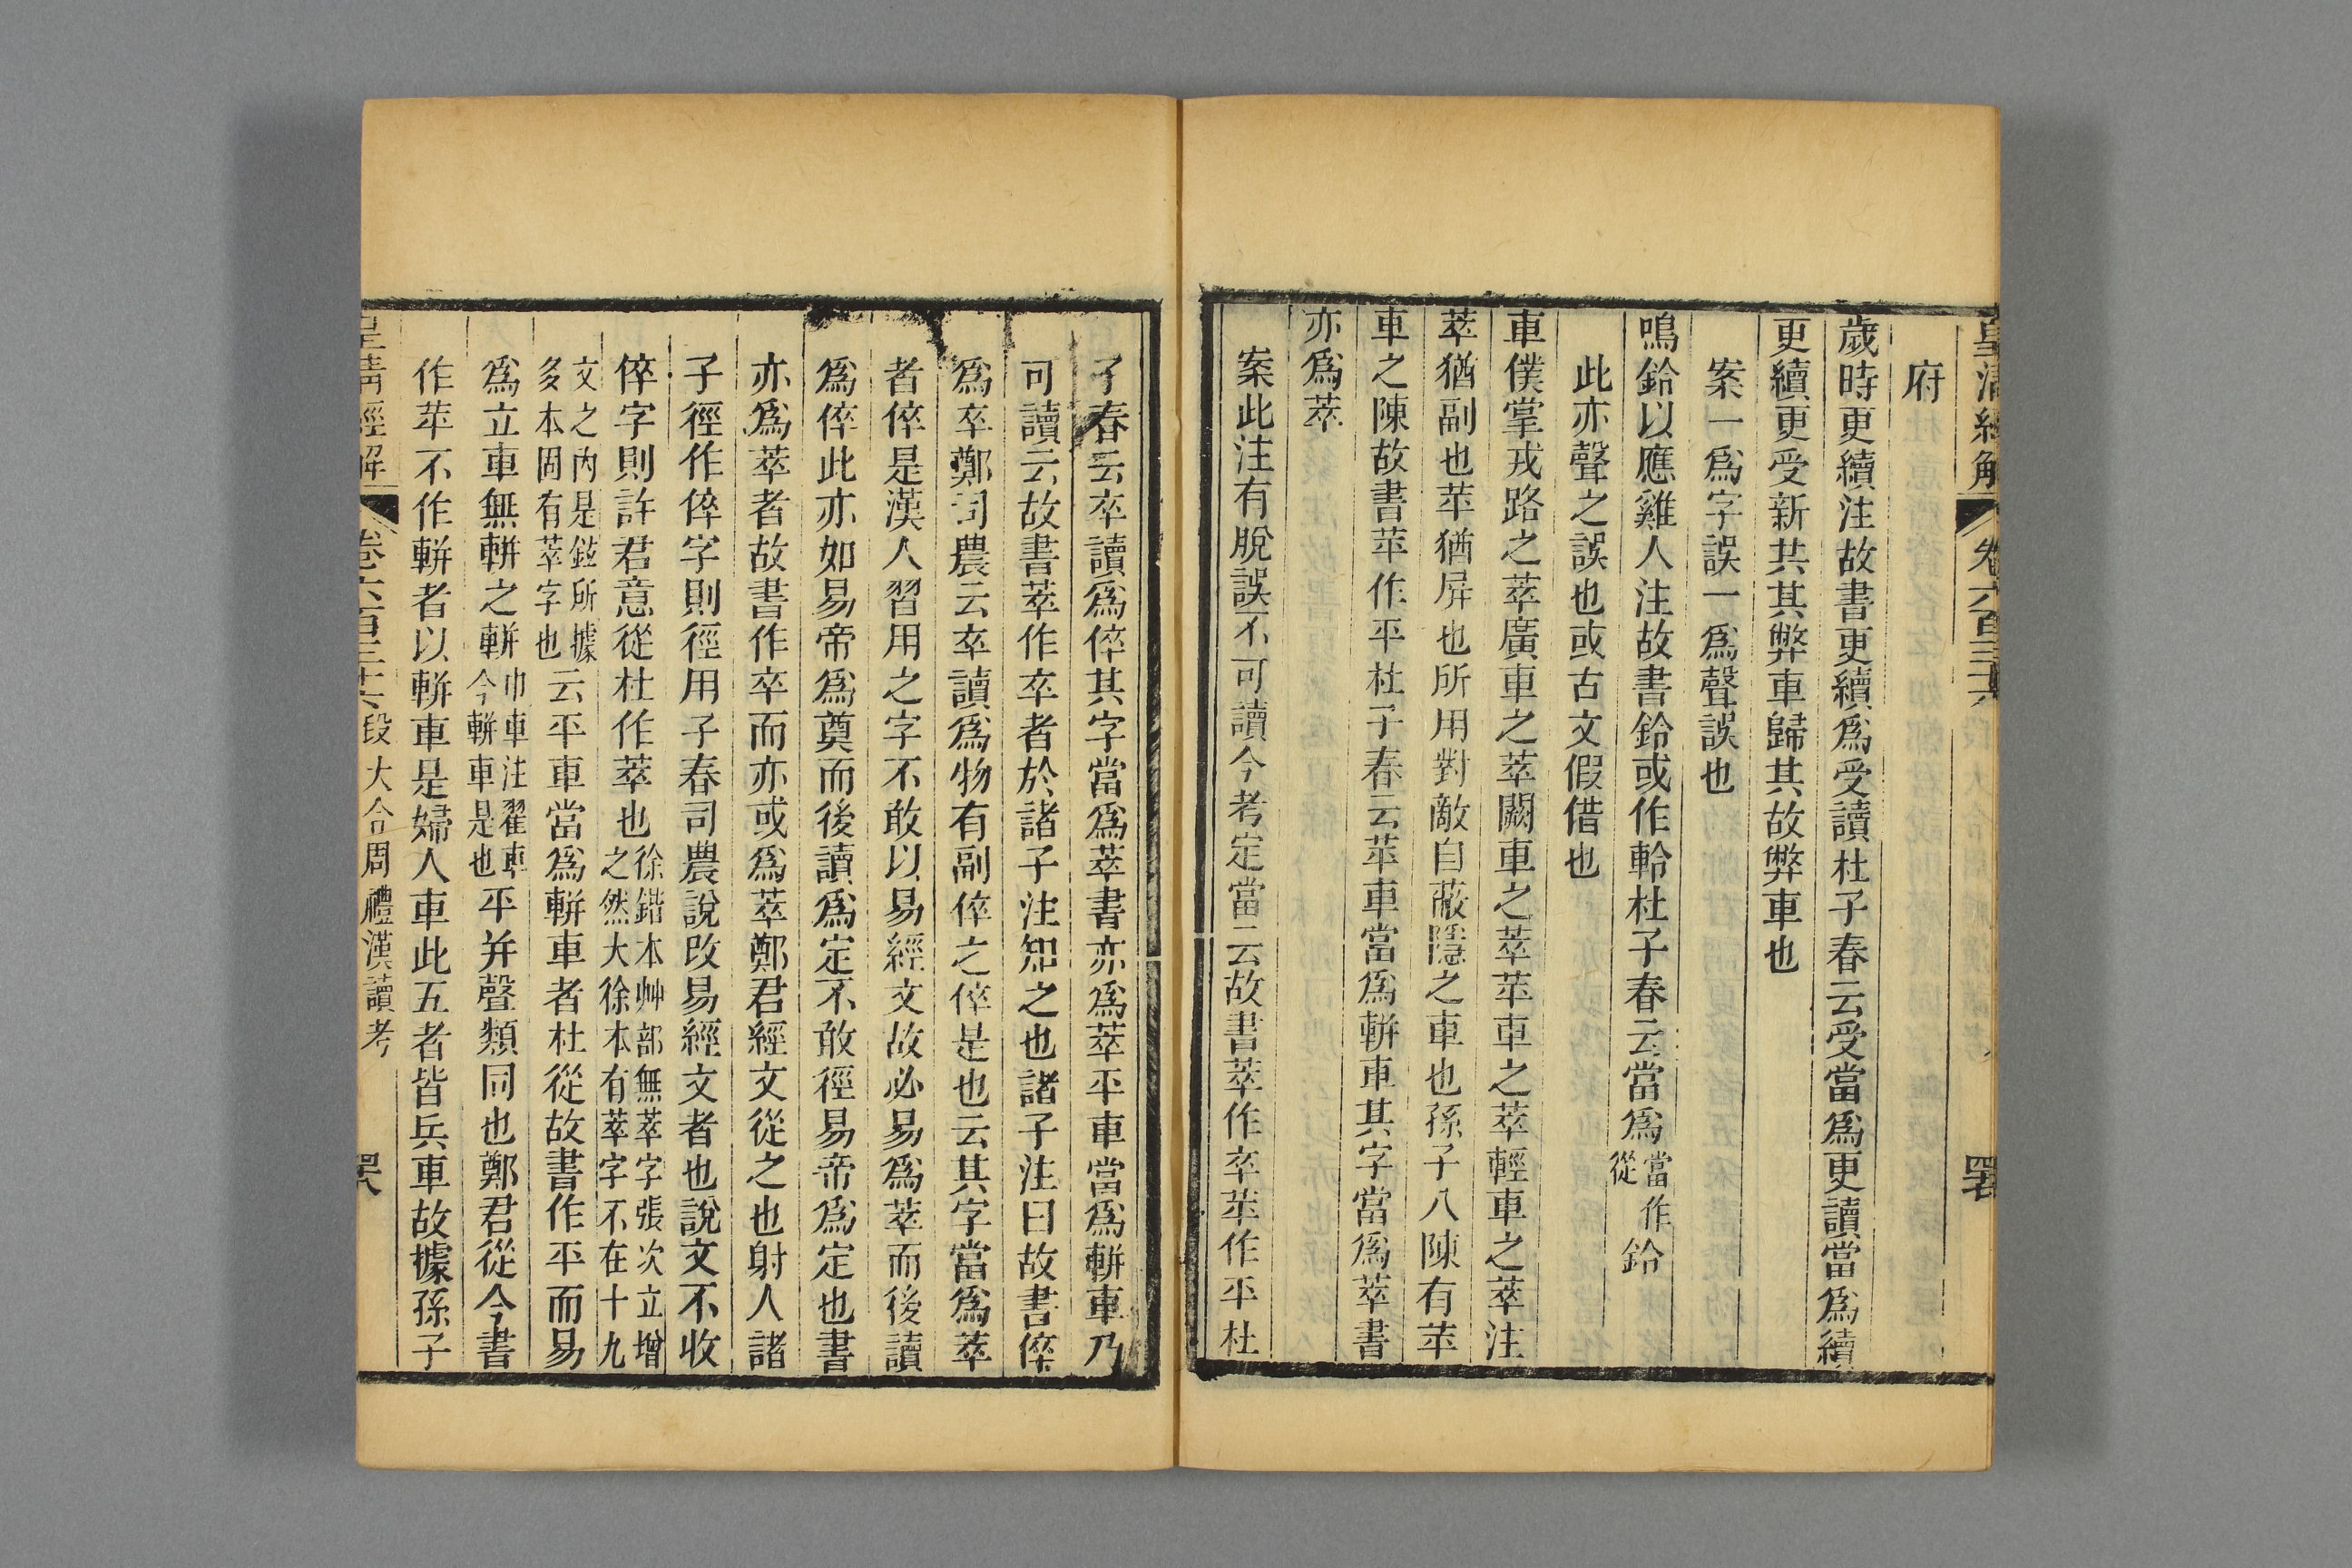 皇清經解 卷六百三十六
府
歲時更續注故書更續爲受讀杜子春云受當爲更讀當爲續
更續更受新共其弊車歸其故弊車也
案一爲字誤一爲聲誤也
鳴鈴以應雞人注故書鈴或作軨杜子春云當爲當作從鈴
此亦聲之誤也或古文假借也
車僕掌戎路之萃廣車之萃闕車之萃苹車之萃輕車之萃注
萃猶副也苹猶屏也所用對敵自蔽隱之車也孫子八陳有苹
車之陳故書苹作平杜子春云苹車當爲軿車其字當爲萃書
亦爲萃
案此注有脫誤不可讀今考定當云故書萃作卒苹作平杜
子春云卒讀爲倅其字當爲萃書亦爲萃平車當爲軿車乃
可讀云故書萃作卒者於諸子注知之也諸子注曰故書倅
爲卒鄭司農云卒讀爲物有副倅之倅是也云其字當爲萃
者倅是漢人習用之字不敢以易經文故必易爲萃而後讀
爲倅此亦如易帝爲奠而後讀爲定不敢徑易帝爲定也書
亦爲萃者故書作卒而亦或爲萃鄭君經文從之也射人諸
子徑作倅字則徑用子春司農說改易經文者也說文不收
倅字則許君意從杜作萃也徐鍇本艸部無萃字張次立增之然大徐本有萃字不在十九
文之內是鉉所據多本固有萃字也云平車當爲軿車者杜從故書作平而易
爲立車無軿之軿巾車注翟車今軿車是也平并聲類同也鄭君從今書
作苹不作軿者以軿車是婦人車此五者皆兵車故據孫子
皇清經解 卷六百三十六 段大令周禮漢讀考